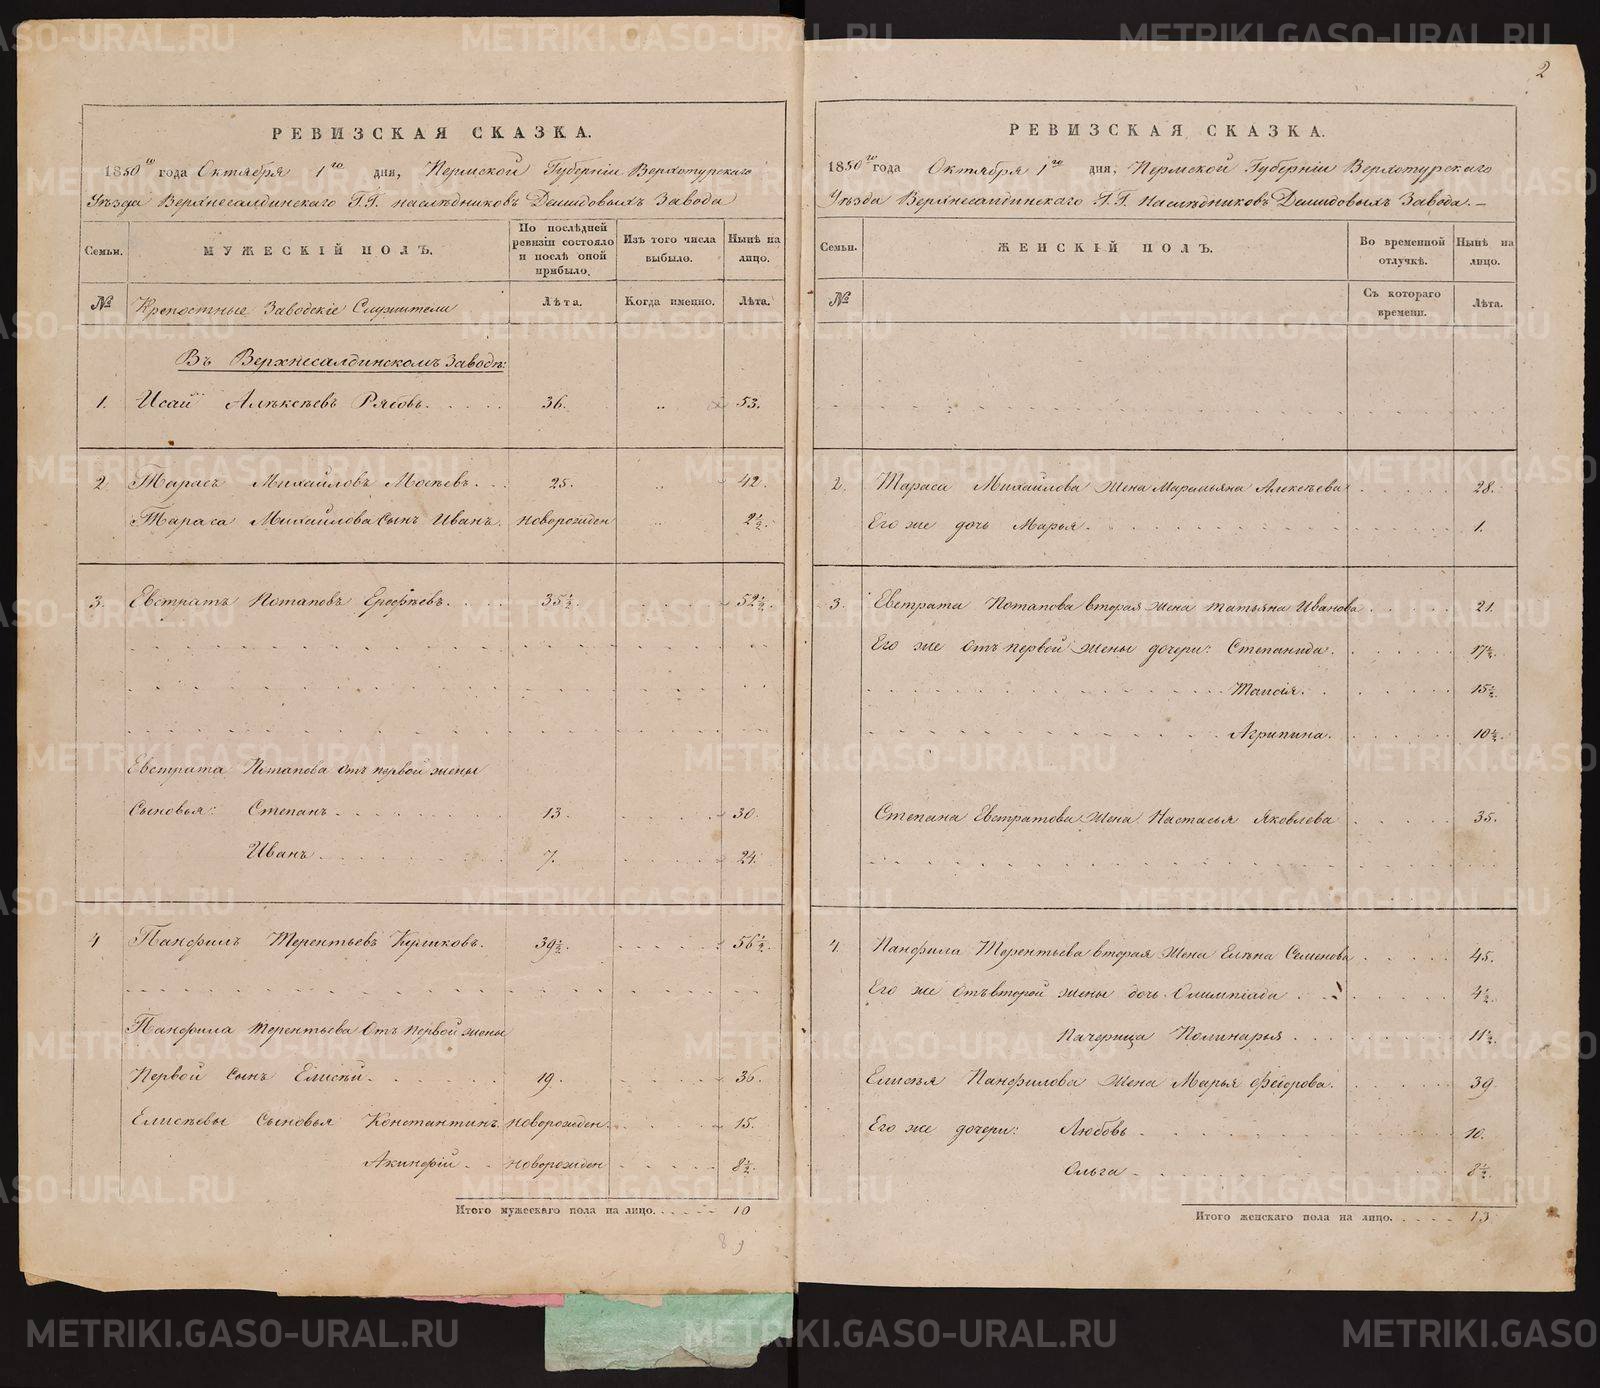 РЕВИЗСКАЯ СКАЗКА.
1850го года Октября 1го дня, Пермской Губернiи Верхотурскаго
Уѣзда Верхнесалдинскаго Г.Г. наслѣдниковъ Демидовыхъ Завода
Семьи.
МУЖЕСКIЙ ПОЛЪ.
По послѣдней ревизiи состояло и послѣ оной прибыло.
Изъ того числа выбыло.
Нынѣ на лицо.
№ Крепостные Заводскiе Служители
Лѣта. Когда именно. Лѣта.
Въ Верхнесалдинскомъ Заводѣ:
1. Исай Алѣксѣевъ Рябовъ. 36. „ 53.
2. Тарасъ Михайловъ Мосѣевъ. 25. „ 42.
Тараса Михайлова Сынъ Иванъ. новорожден „ 2½.
3. Евстратъ Потаповъ Ерофѣевъ. 35½. 52½.
Евстрата Потапова отъ первой жены
Сыновья: Степанъ 13. 30.
Иванъ 7. 24.
4 Панфилъ Терентьевъ Куликовъ. 39½. 56½.
Панфила Терентьева Отъ Первой жены
Первой Сынъ Елисѣй. 19. 36.
Елисѣевы Сыновья Константинъ новорожден. 15.
Акинфiй новорожден 8½.
Итого мужескаго пола на лицо. 10
2
РЕВИЗСКАЯ СКАЗКА.
1850го года Октября 1го дня, Пермской Губернiи Верхотурскаго
Уѣзда Верхнесалдинскаго Г.Г. наслѣдниковъ Демидовыхъ Завода.
Семьи.
ЖЕНСКIЙ ПОЛЪ.
Во временной отлучкѣ.
Нынѣ на лицо.
№
Съ котораго времени.
Лѣта.
2. Тараса Михайлова жена Марамьяна Алексѣева 28.
Его же дочь Марья. 1.
3. Евстрата Потапова вторая жена татьяна Иванова 21.
Его же Отъ первой жены дочери: Степанида. 17½.
Таисiя. 15½.
Агрипина. 10½.
Степана Евстратова жена Настасья Яковлева 35.
4. Панфила Терентьева вторая жена Елѣна Семенова 45.
Его же Отъ второй жены дочь Олимпiада 4½.
Пачерица Полинарья 11½.
Елисѣя Панфилова жена Марья Федорова. 39
Его же дочери: Любовь 10.
Ольга 8½.
Итого женскаго пола на лицо. 13
METRIKI.GASO-URAL.RU